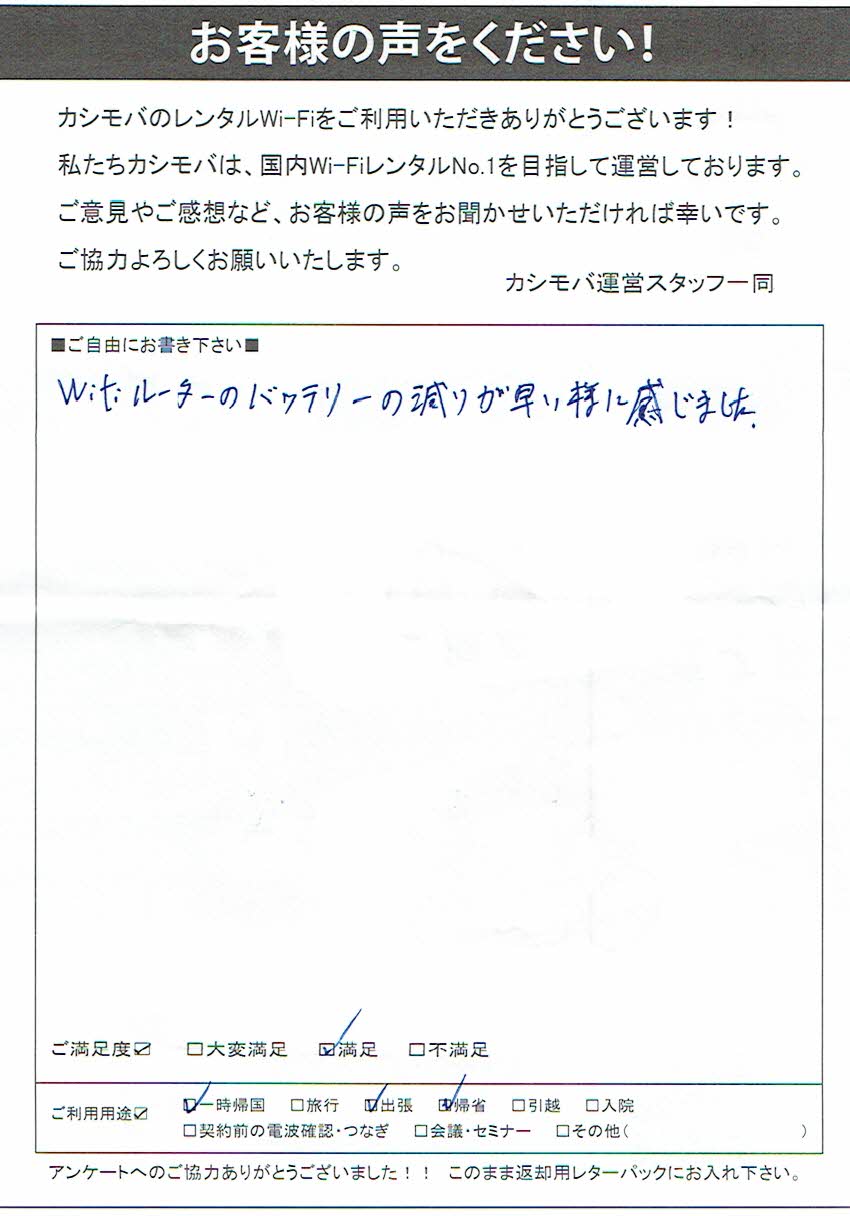 お客様の声をください!
カシモバのレンタルWi-Fiをご利用いただきありがとうございます!
私たちカシモバは、国内Wi-FiレンタルNo.1を目指して運営しております。
ご意見やご感想など、お客様の声をお聞かせいただければ幸いです。
ご協力よろしくお願いいたします。
カシモバ運営スタッフ一同
■ご自由にお書き下さい■
Wifiルーターのバッテリーの減りが早い様に感じました.
ご満足度☑ □大変満足 ☑満足 □不満足
ご利用用途☑ ☑一時帰国 □旅行 ☑出張 ☑帰省 □引越 □入院
□契約前の電波確認・つなぎ □会議・セミナー □その他( )
アンケートへのご協力ありがとうございました!! このまま返却用レターパックにお入れ下さい。